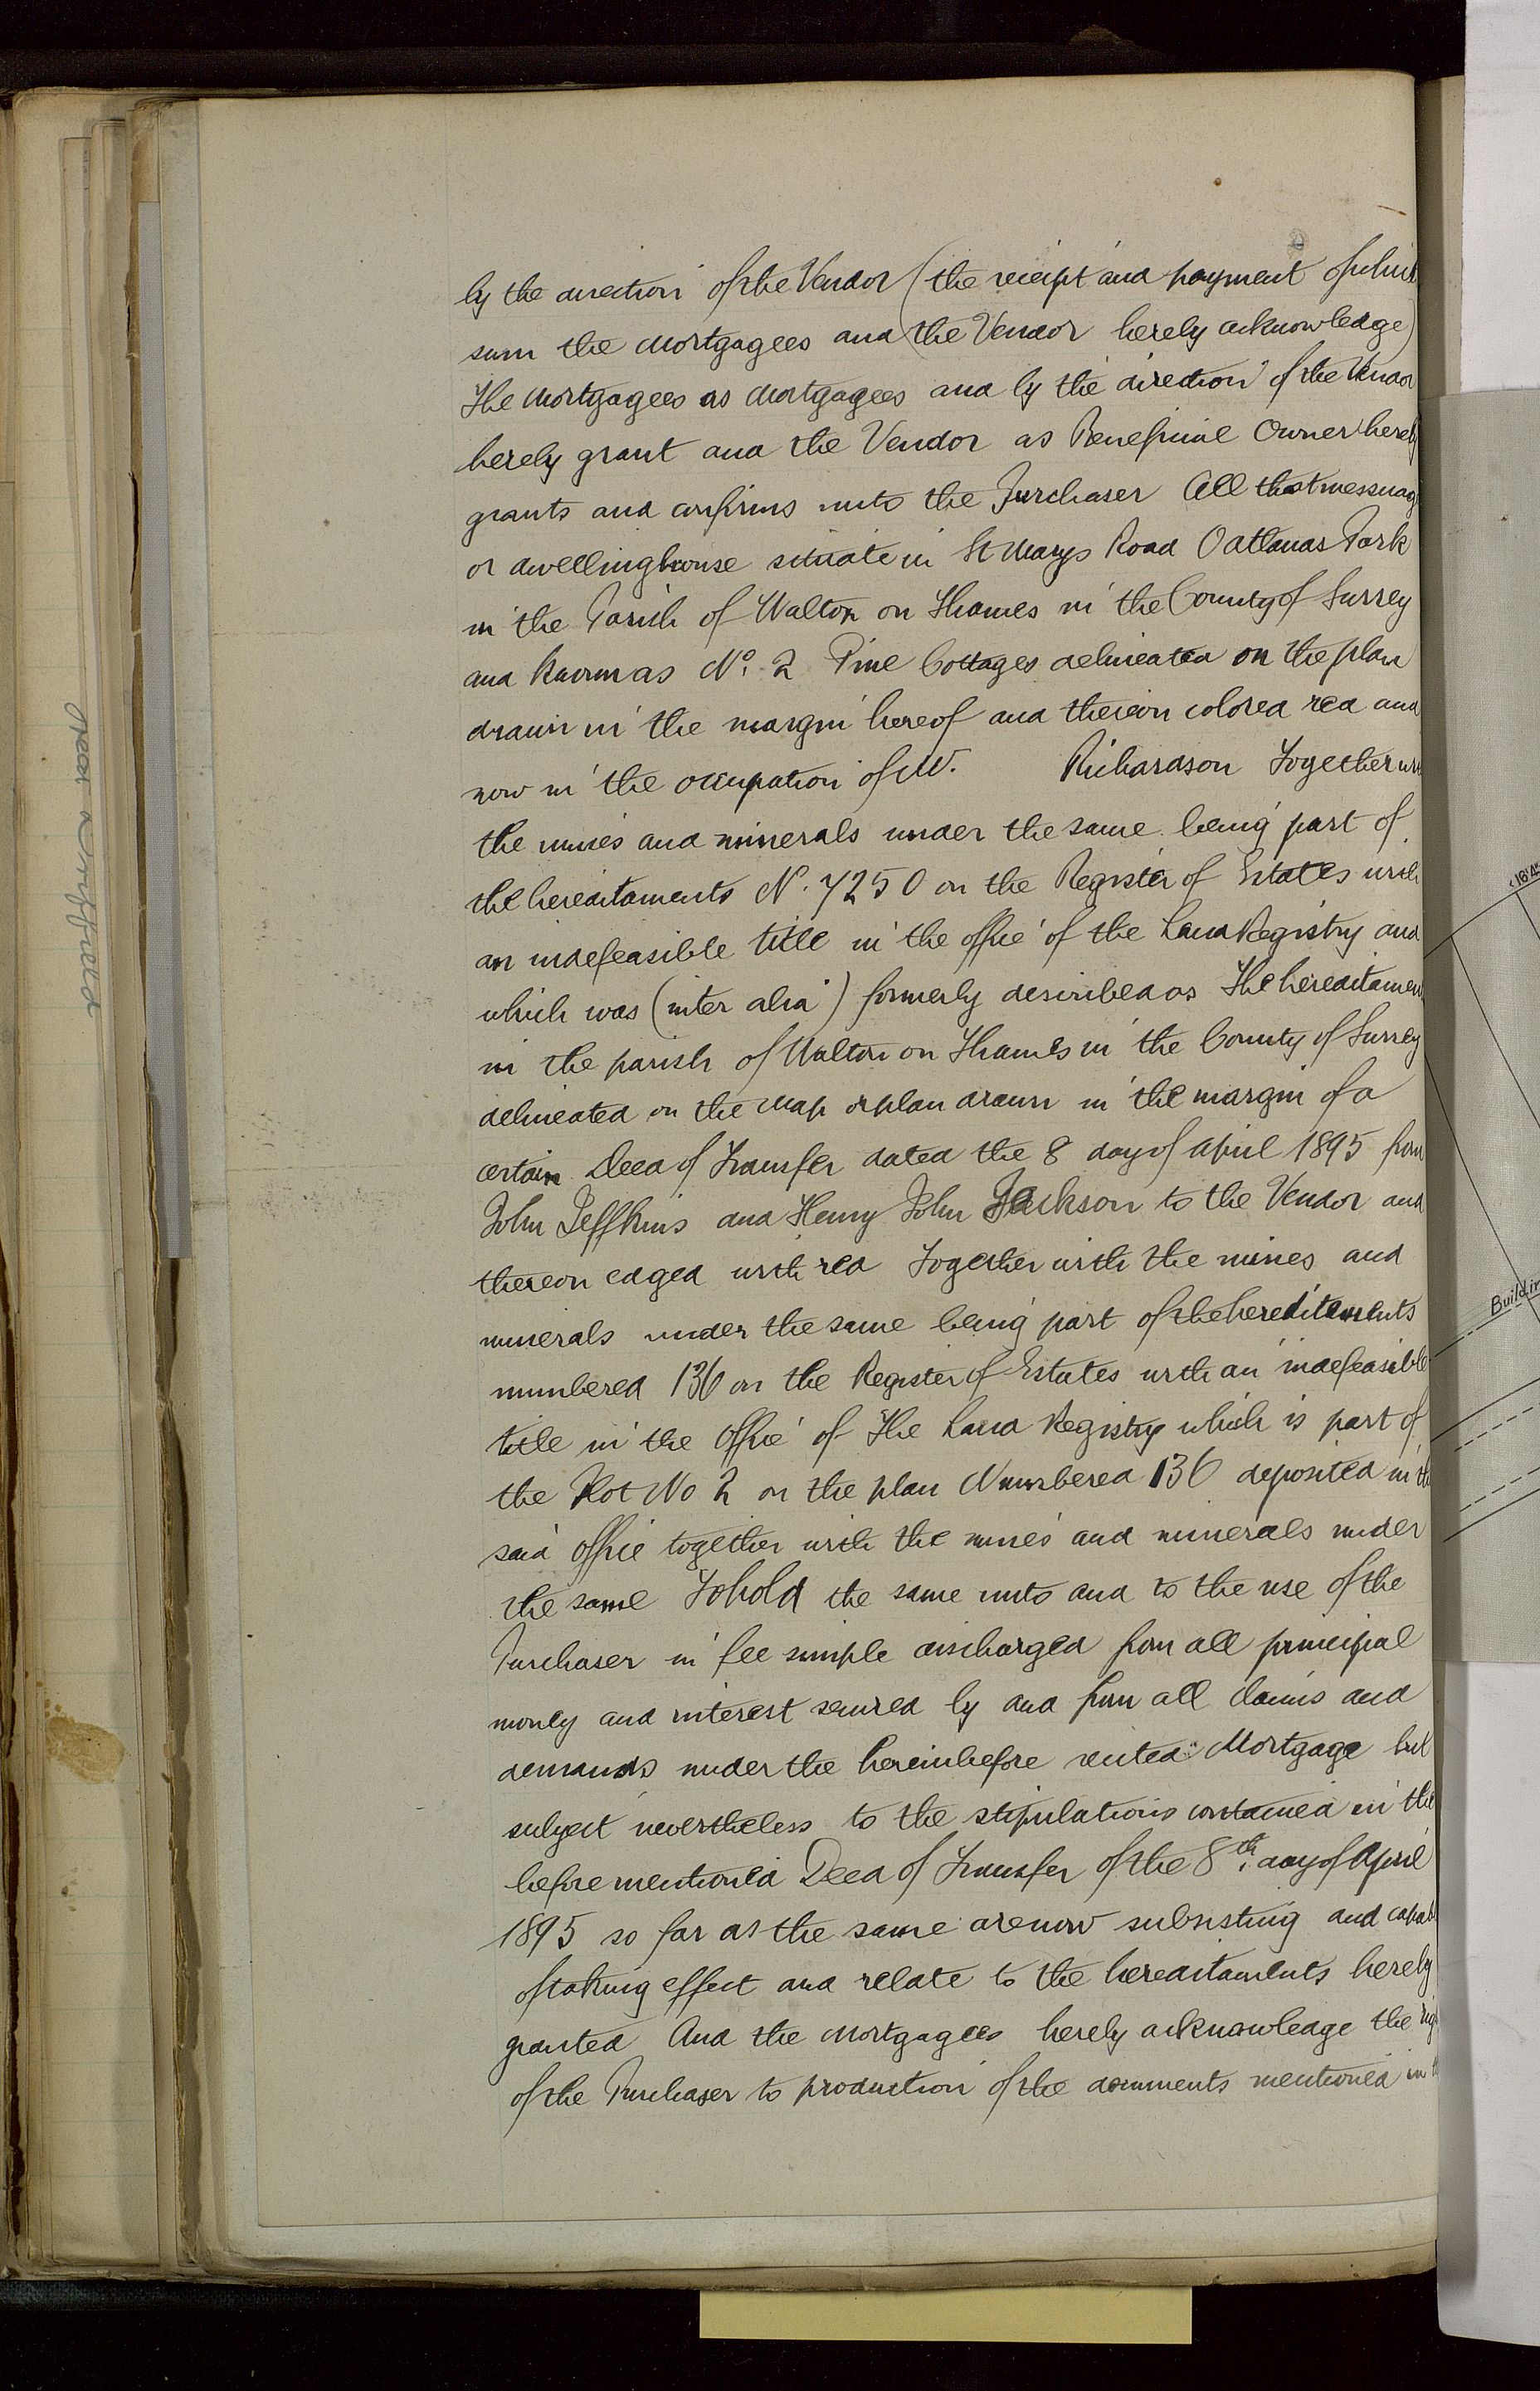 by the direction of the Vendor (the receipt and payment of which
sum the Mortgagees and the Vendor hereby acknowledge)
The Mortgagees as Mortgagees and by the direction of the Vendor
hereby grant and the Vendor as Beneficial Owner hereby
grants and confirms unto the Purchaser All that messuag
or dwellinghouse situate in St Marys Road Oatlands Park
in the Parish of Walton on Thames in the County of Surrey
and known as No. 2 Pine Cottages delineated on the plan
drawn in the margin hereof and thereon colored red and
now in the occupation of W. Richardson Together with
the mines and minerals under the same being part of
the hereditaments N. 7250 on the Register of Estates with
an indefeasible title in the office of the Land Registry and
which was (inter alia) formerly described as The hereditamen
in the parish of Walton on Thames in the County of Surrey
delineated on the map or plan drawn in the margin of a
certain Deed of Transfer dated the 8 day of April 1895 from
John Jeffkins and Henry John Jackson to the Vendor and
thereon edged with red Together with the mines and
minerals under the same being part of the hereditaments
numbered 136 on the Register of Estates with an indefeasible
title in the Office of The Land Registry which is part of
the Plot No 2 on the plan Numbered 136 deposited in the
said office together with the mines and minerals under
the same To hold the same unto and to the use of the
Purchaser in fee simple discharged from all principal
money and interest secured by and from all claims and
demands under the hereinbefore recited Mortgage but
subject nevertheless to the stipulations contained in the
before mentioned Deed of Transfer of the 8th. day of April
1895 so far as the same are now subsisting and capabl
of taking effect and relate to the hereditaments hereby
granted And the Mortgagees hereby acknowledge the rig
of the Purchaser to production of the documents mentioned in th
Buildin